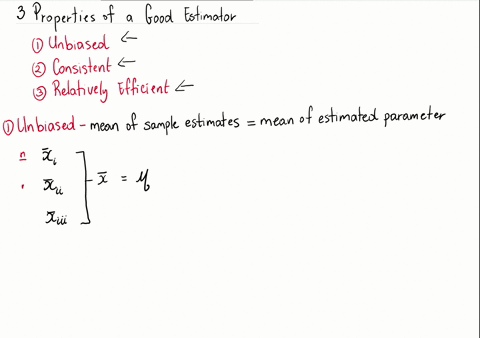 3 Properties of a Good Estimator
① Unbiased ←
② Consistent ←
③ Relatively Efficient ←
① Unbiased - mean of sample estimates = mean of estimated parameter
n x̄i
x̄ii - x̄ = μ
x̄iii